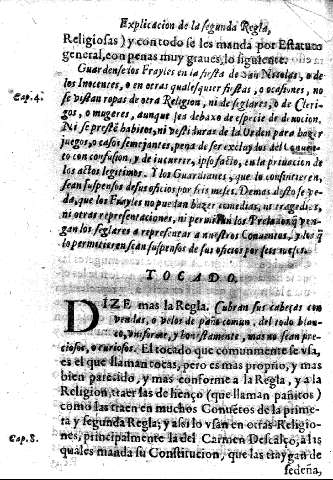 Explicacion de la segunda Regla,
Religiosas) y con todo se les manda por Estatuto
general, con penas muy graues, lo siguiente.
Cap. 4.
Guardense los Frayles en la fiesta de San Nicolas, o de
los Inocentes, o en otras qualesquier fiestas, o ocasiones, no
se vistan ropas de otra Religion, ni de seglares, o de Cleri-
gos, o mugeres, aunque sea debaxo de especie de deuocion.
Ni se prestē habitos, ni vestiduras de la Orden para hazer
juegos, o cosas semejantes, pena de ser excluydos del Conuēto
con confusion, y de incurrir, ipso facto, en la priuacion de
los actos legitimos. Y los Guardianes, que lo consintieren,
sean suspensos de sus oficios por seis meses. Demas desto se ve
da, que los Frayles no puedan hazer comedias, ni tragedias,
ni otras representaciones, ni permitan los Prelados q̄ ven-
gan los seglares a representar a nuestros Conuentos, y los q̄
lo permitieren sean suspensos de sus oficios por seis meses.
TOCADO.
DIZE mas la Regla. Cubran sus cabeças con
vendas, o velos de paño comun, del todo blan-
co, vniforme, y honestamente, mas no sean pre-
ciosos, o curiosos. El tocado que comunmente se vsa,
es el que llaman tocas, pero es mas proprio, y mas
bien parecido, y mas conforme a la Regla, y a la
Religion, traer las de lienço (que llaman pañitos)
como las traen en muchos Conuētos de la prime-
ra y segunda Regla; y assi lo vsan en otras Religio-
Cap. 8.
nes, principalmente la del Carmen Descalço, a las
quales manda su Constitucion, que las traygan de
sedeña,